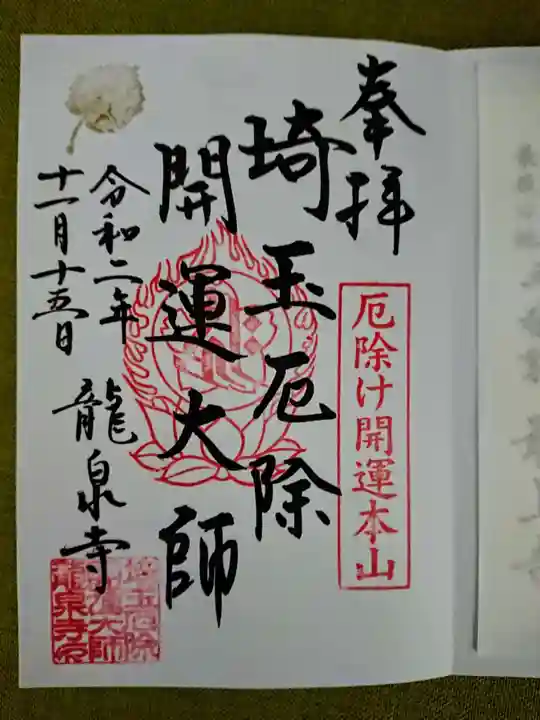 奉拝
厄除け開運本山
埼玉厄除
開運大師
令和二年
十一月十五日
龍泉寺
埼玉厄除
開運大師
龍泉寺印